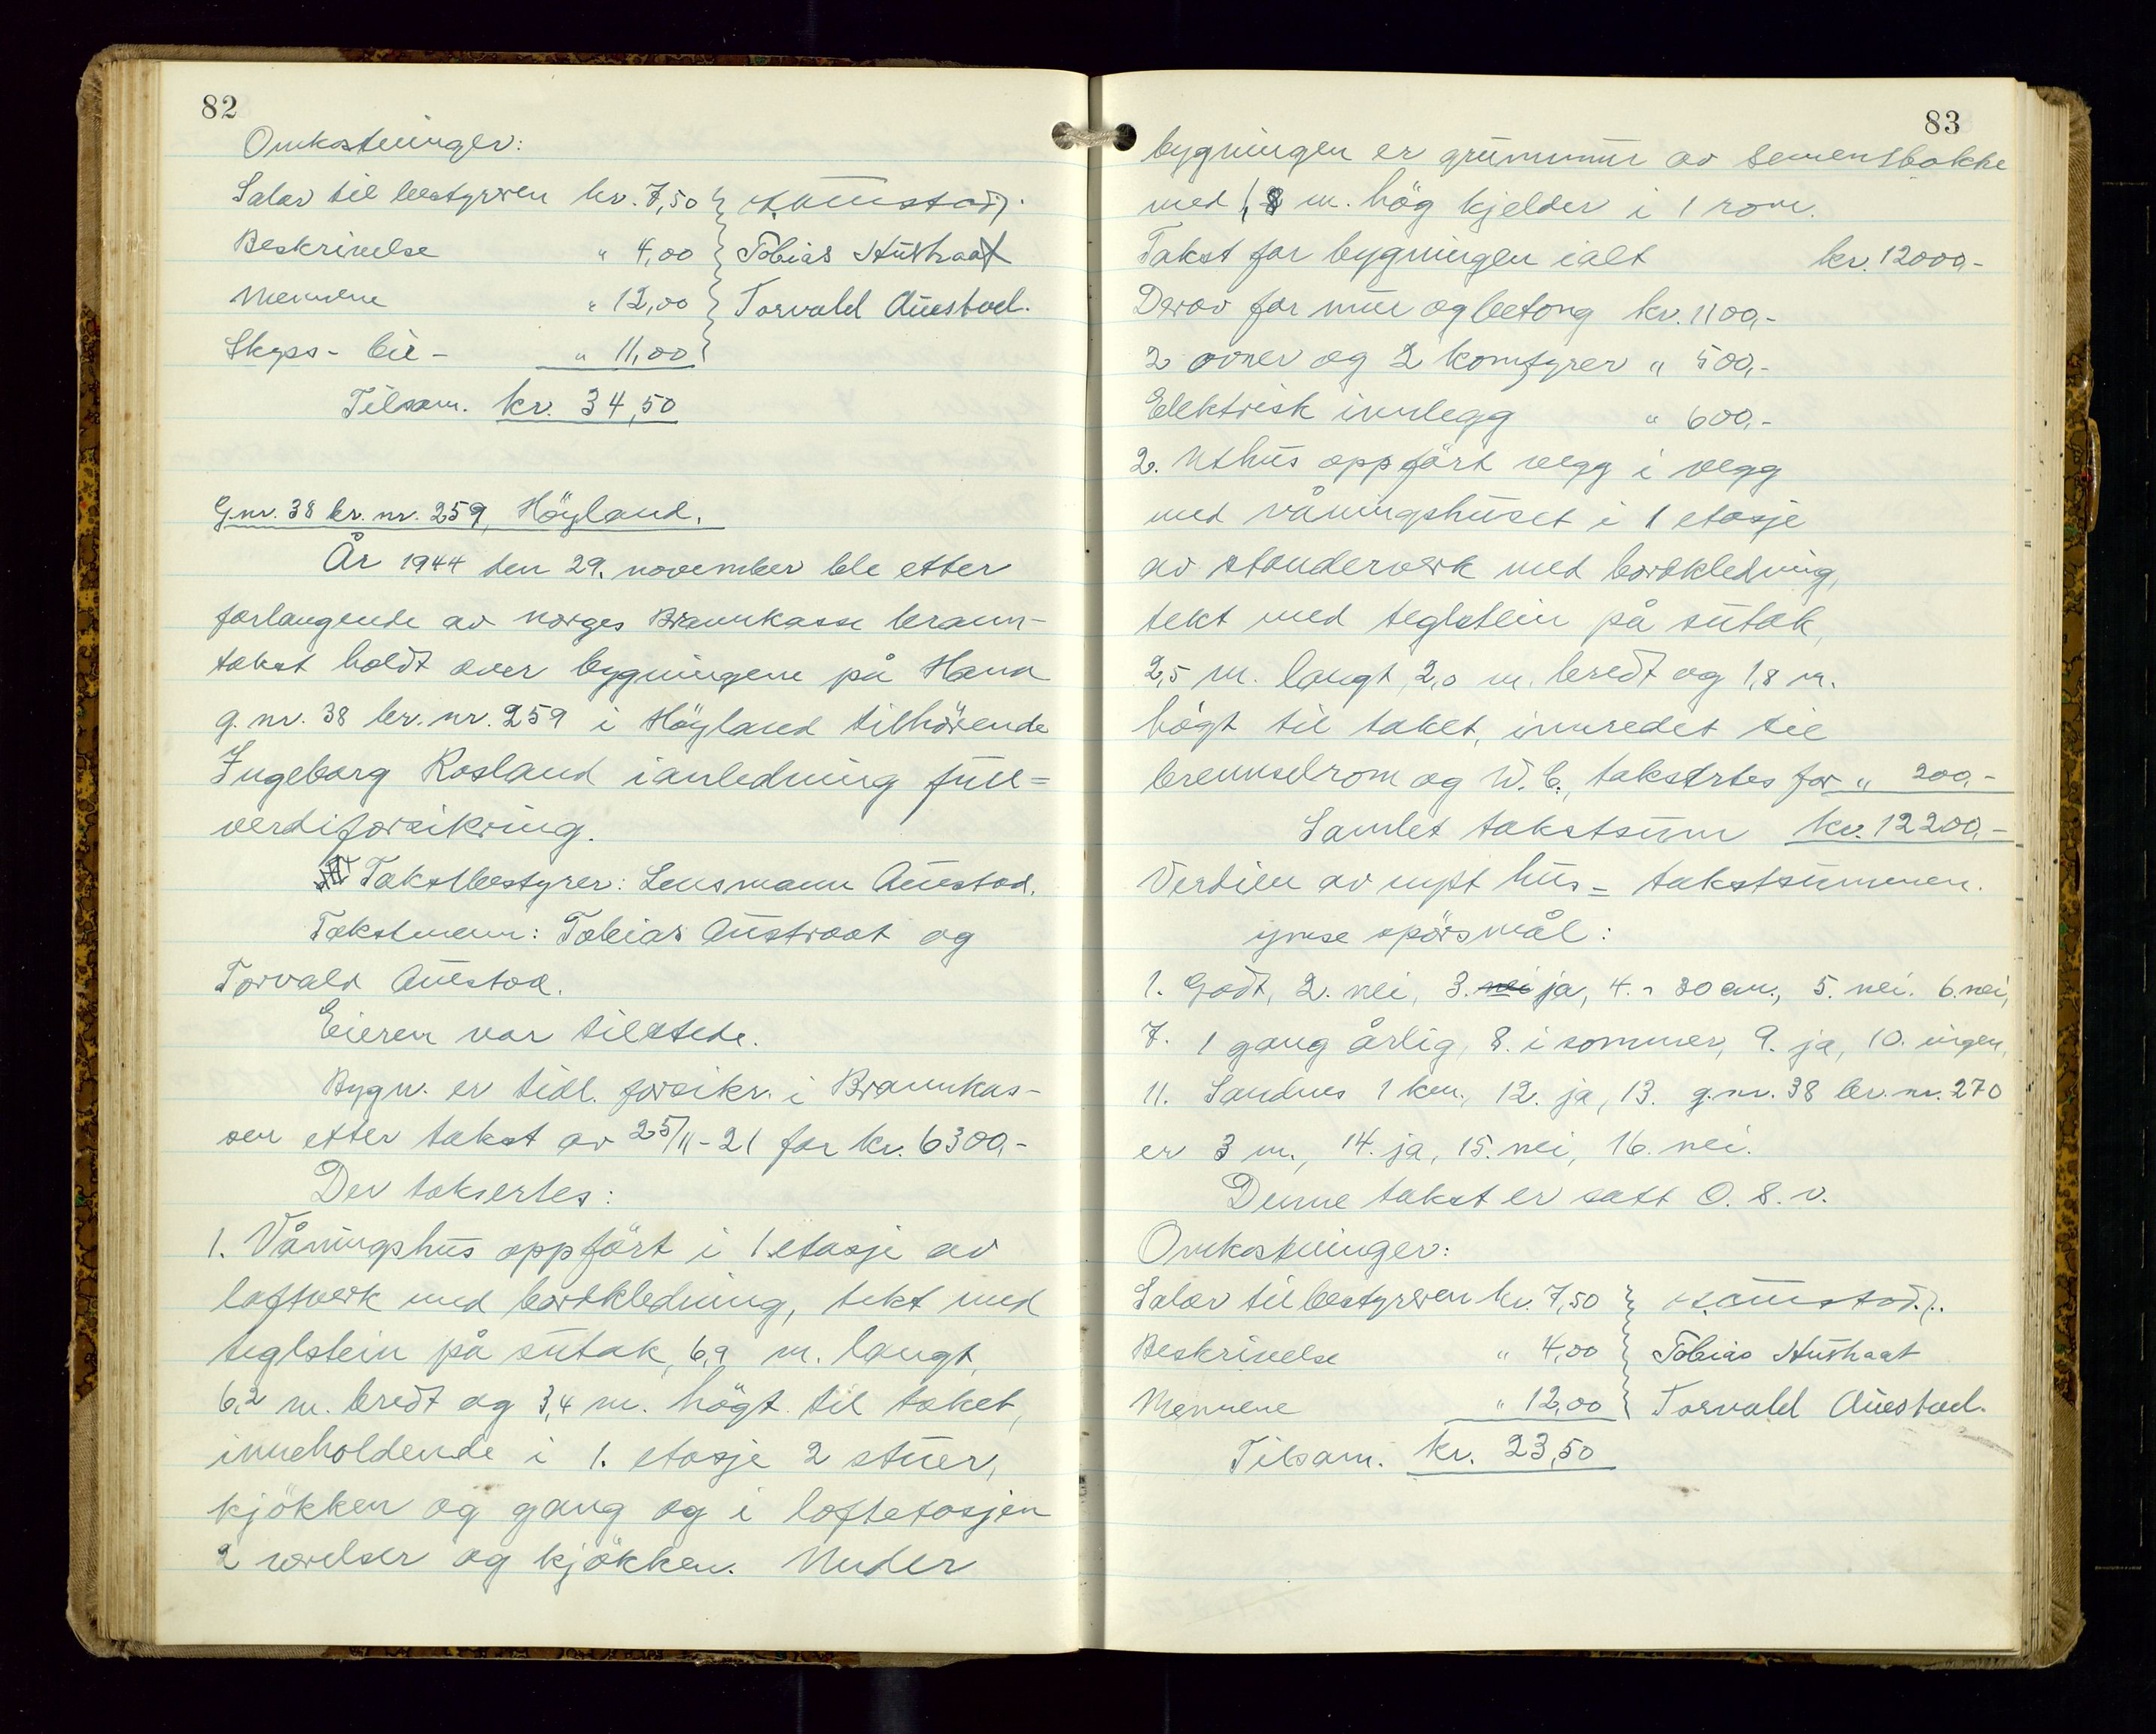 82
Omkostninger:
Salar til bestyreren kr. 7,50
Beskrivelse " 4,00 Tobias Austraat
Mennene " 12,00 Torvald Auestad.
Skyss- bil- " 11,00
Tilsam. kr. 34,50
G.nr. 38 br. nr. 259, Höyland.
År 1944 den 29. november ble etter
forlangende av Norges Brannkasse brann-
takst holdt over bygningene på Hana
g. nr. 38 br. nr. 259 i Höyland tilhörende
Ingeborg Rosland i anledning full=
verdiforsikring.
Takstbestyrer: Lensmann Auestad.
Takstmenn: Tobias Austraat og
Torvald Auestad.
Eieren var tilstede.
Bygn. er tidl. forsikr. i Brannkas-
sen etter takst av 25/11-21 for kr. 6300,-
Der taksertes:
1. Våningshus oppfört i 1 etasje av
laftverk med bordkledning, tekt med
teglstein på sutak, 6,9 m. langt,
6,2 m. bredt og 3,4 m. högt til taket,
inneholdende i 1. etasje 2 stuer,
kjökken og gang og i loftetasjen
2 værelser og kjökken. Under
83
bygningen er grunnmur av sementblokke
med 1,8 m. hög kjelder i 1 rom.
Takst for bygningen ialt kr. 12000,-
Derav for mur og betong kr. 1100,-
2 ovner og 2 komfyrer " 500,-
Elektrisk innlegg " 600,-
2. Uthus oppfört vegg i vegg
med våningshuset i 1 etasje
av standerverk med bordkledning,
tekt med teglstein på sutak,
2,5 m. langt, 2,0 m. bredt og 1,8 m.
högt til taket, innredet til
brenselrom og W.C., takstrtes for " 200,-
Samlet takstsum kr. 12200,-
Verdien av nytt hus = takstsummen.
ymse spörsmål:
1. Godt, 2. nei, 3. nei ja, 4. - 30 cm., 5. nei. 6. nei,
7. 1 gang årlig, 8. i sommer, 9. ja, 10. ingen,
11. Sandnes 1 km., 12. ja, 13. g.nr. 38 br. nr. 270
er 3 m., 14. ja, 15. nei, 16. nei.
Denne takst er satt O. s. v.
Omkostninger:
Salar til bestyreren kr. 7,50
Beskrivelse " 4,00 Tobias Austraat
Mennene " 12,00 Torvald Auestad.
Tilsam. kr. 23,50